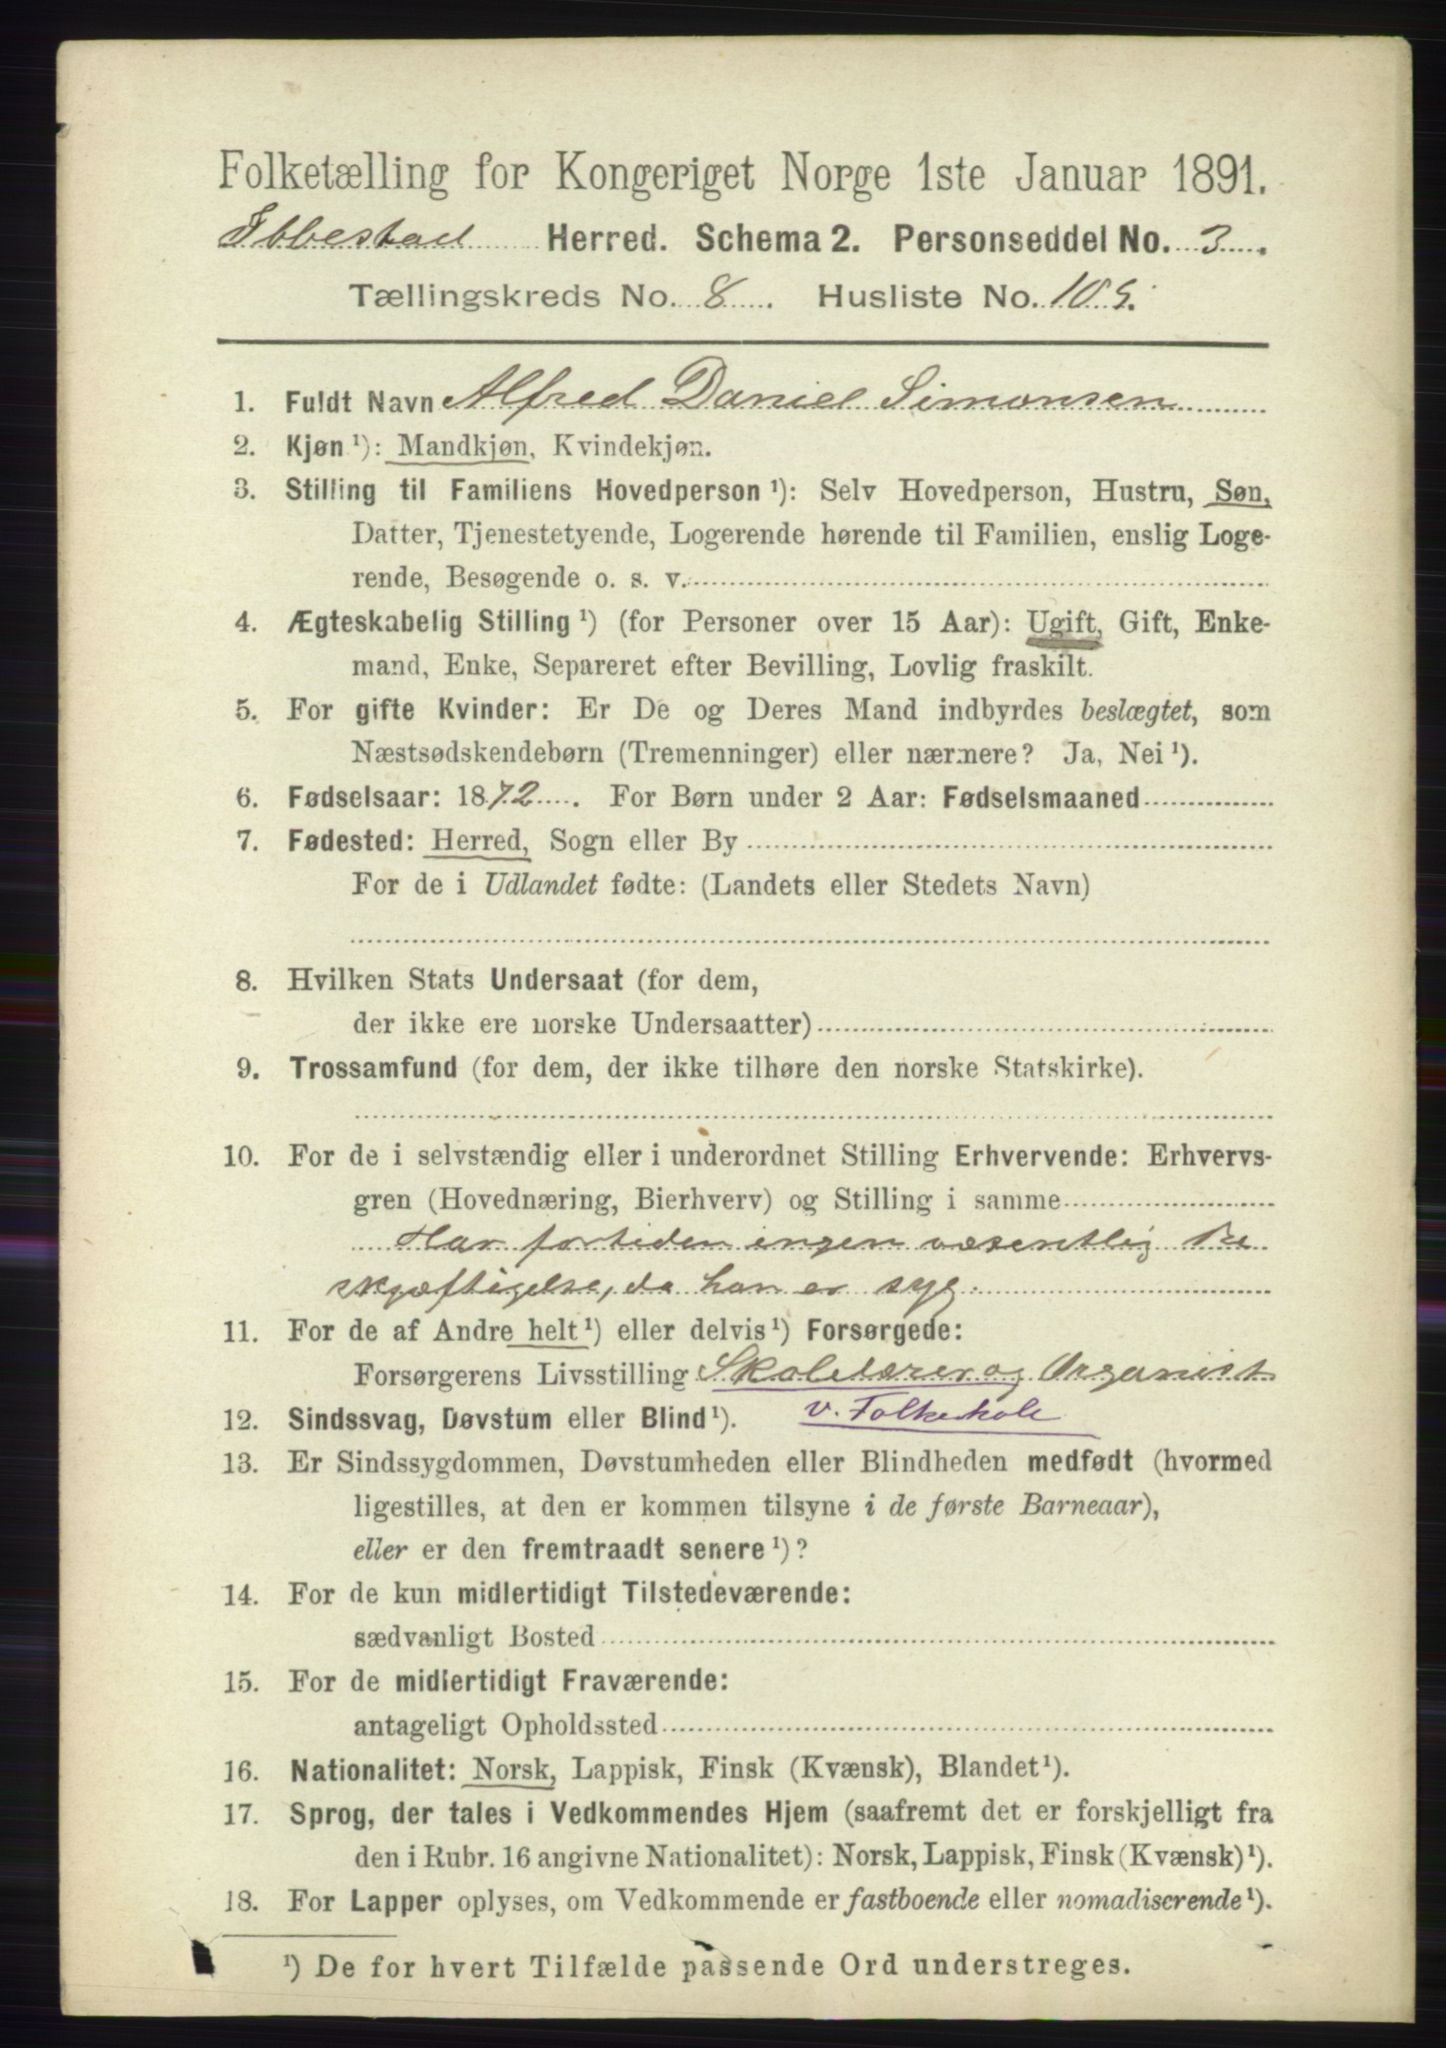 Folketælling for Kongeriget Norge 1ste Januar 1891.
Ibbestad Herred. Schema 2. Personseddel No. 3.
Tællingskreds No. 8. Husliste No. 105.
1. Fuldt Navn Alfred Daniel Simonsen
2. Kjøn ¹): Mandkjøn, Kvindekjøn.
3. Stilling til Familiens Hovedperson ¹): Selv Hovedperson, Hustru, Søn,
Datter, Tjenestetyende, Logerende hørende til Familien, enslig Loge-
rende, Besøgende o. s. v.
4. Ægteskabelig Stilling ¹) (for Personer over 15 Aar): Ugift, Gift, Enke-
mand, Enke, Separeret efter Bevilling, Lovlig fraskilt.
5. For gifte Kvinder: Er De og Deres Mand indbyrdes beslægtet, som
Næstsødskendebørn (Tremenninger) eller nærmere? Ja, Nei ¹).
6. Fødselsaar: 1872. For Børn under 2 Aar: Fødselsmaaned
7. Fødested: Herred, Sogn eller By
For de i Udlandet fødte: (Landets eller Stedets Navn)
8. Hvilken Stats Undersaat (for dem,
der ikke ere norske Undersaatter)
9. Trossamfund (for dem, der ikke tilhøre den norske Statskirke).
10. For de i selvstændig eller i underordnet Stilling Erhvervende: Erhvervs-
gren (Hovednæring, Bierhverv) og Stilling i samme
Har fortiden ingen væsentlig Be
skjæftigelse, da han er syg.
11. For de af Andre helt ¹) eller delvis ¹) Forsørgede:
Forsørgerens Livsstilling Skolelærer og Organist
v. Folkeskole
12. Sindssvag, Døvstum eller Blind ¹).
13. Er Sindssygdommen, Døvstumheden eller Blindheden medfødt (hvormed
ligestilles, at den er kommen tilsyne i de første Barneaar),
eller er den fremtraadt senere ¹)?
14. For de kun midlertidigt Tilstedeværende:
sædvanligt Bosted
15. For de midlertidigt Fraværende:
antageligt Opholdssted
16. Nationalitet: Norsk, Lappisk, Finsk (Kvænsk), Blandet ¹).
17. Sprog, der tales i Vedkommendes Hjem (saafremt det er forskjelligt fra
den i Rubr. 16 angivne Nationalitet): Norsk, Lappisk, Finsk (Kvænsk) ¹).
18. For Lapper oplyses, om Vedkommende er fastboende eller nomadiserende ¹).
¹) De for hvert Tilfælde passende Ord understreges.